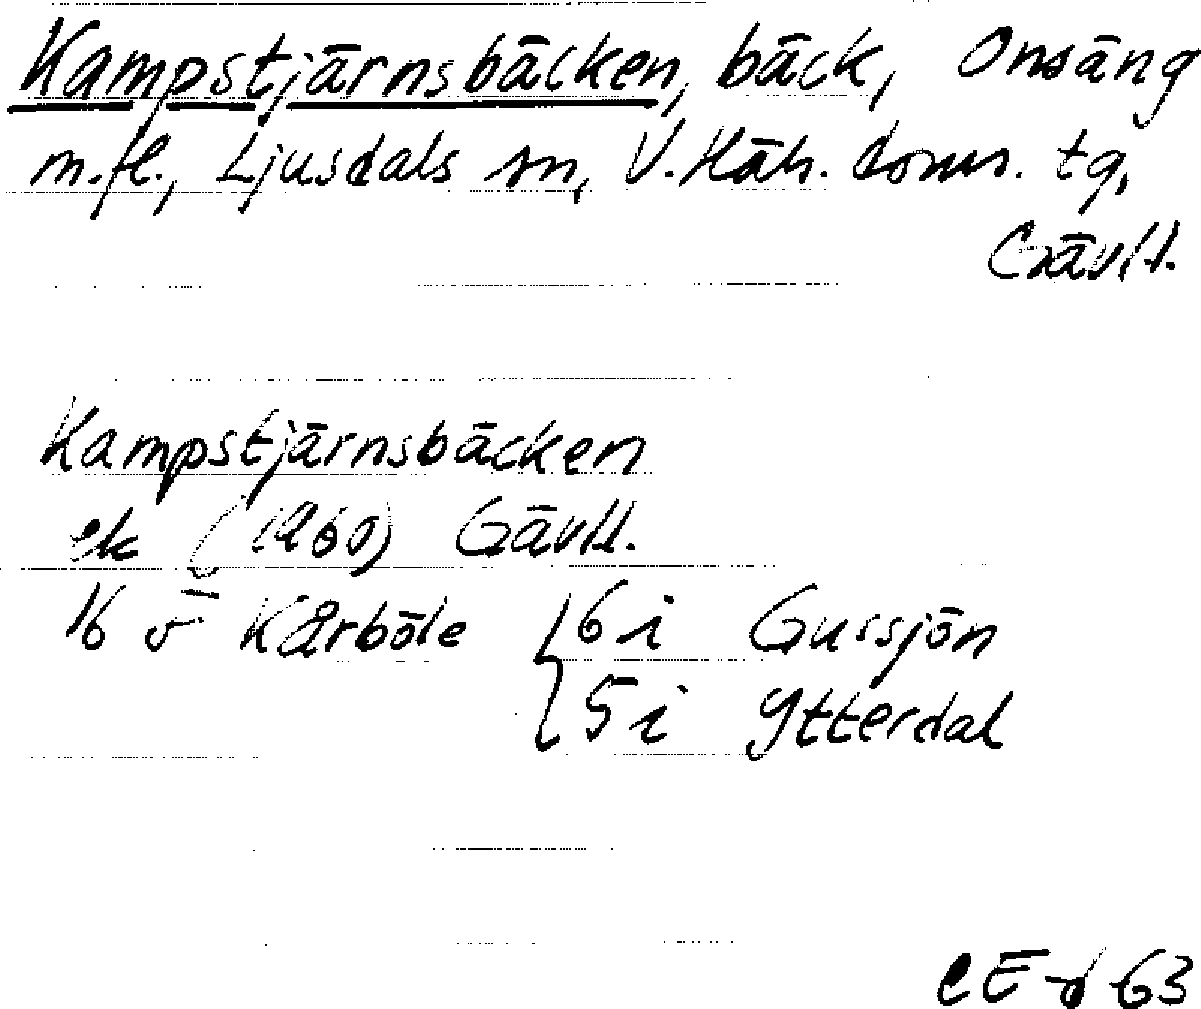 Kampstjärnsbäcken, bäck, Onsäng
m.fl., Ljusdals sn, V. Häls. doms. tg,
Gävll.
Kampstjärnsbäcken
ek (1960) Gävll.
16 Kårböle 6 i Gussjön
5 i Ytterdal
63